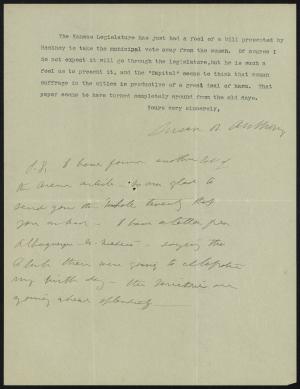 The Kansas Legislature has just had a fool of a bill presented by
Hackney to take the municipal vote away from the women. Of course I
do not expect it will go through the Legislature, but he is such a
fool as to present it, and the "Capital" seems to think that woman
suffrage in the cities is productive of a great deal of harm. That
paper seems to have turned completely around from the old days.
Yours very sincerely,
Susan B. Anthony
P.S. I have found another lot of
the Arena article - so am glad to
send you the whole twenty that
you ask - I have a letter from
Albuquerque - N. Mexico - saying the
Club there were going to celebrate
my birth day - the Territories are
going ahead splendidly